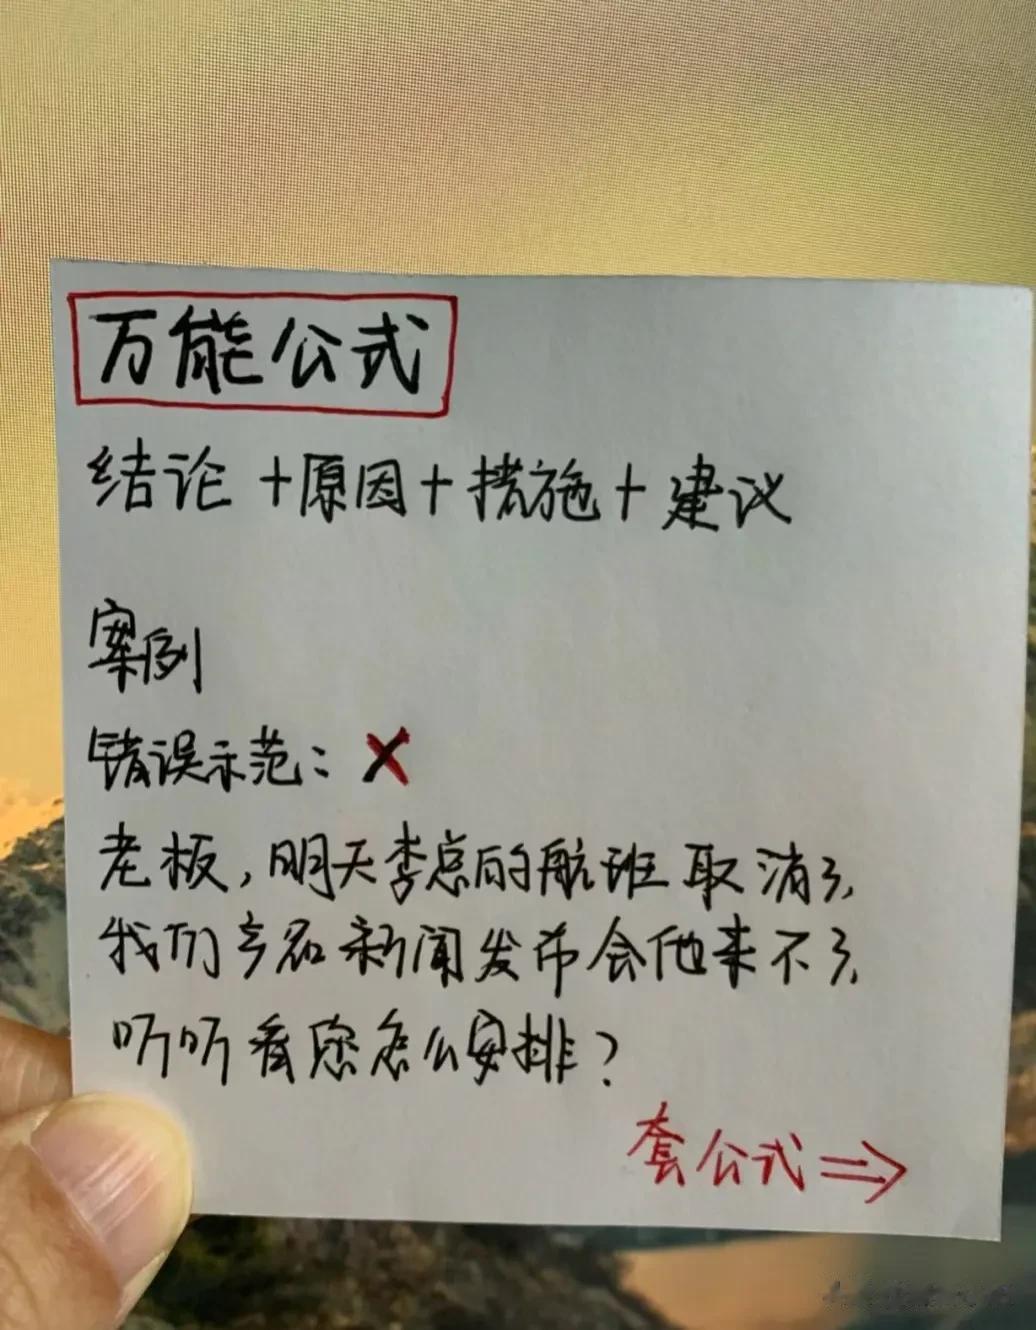 万能公式
结论+原因+措施+建议
案例
错误示范：×
老板，明天李总的航班取消了，
我们这名新闻发布会他来不了，
听听看您怎么安排？
套公式⇒